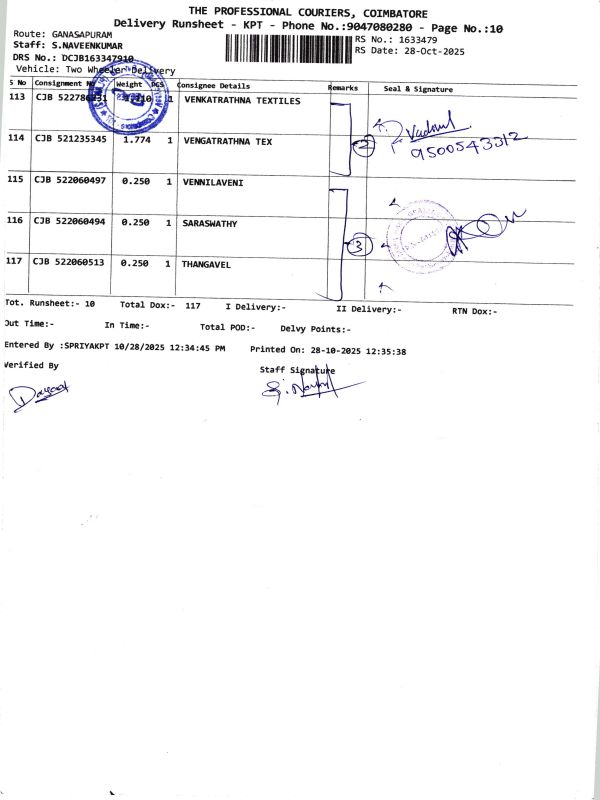 THE PROFESSIONAL COURIERS, COIMBATORE
Delivery Runsheet - KPT - Phone No.:9047080280 - Page No.:10
Route: GANASAPURAM
RS No.: 1633479
Staff: S.NAVEENKUMAR
RS Date: 28-Oct-2025
DRS No.: DCJB163347910
Vehicle: Two Wheeler Delivery
S No Consignment No Weight Pcs Consignee Details Remarks Seal & Signature
113 CJB 1 VENKATRATHNA TEXTILES
114 CJB 521235345 1.774 1 VENGATRATHNA TEX
2
9500543312
115 CJB 522060497 0.250 1 VENNILAVENI
116 CJB 522060494 0.250 1 SARASWATHY
3
117 CJB 522060513 0.250 1 THANGAVEL
Tot. Runsheet:- 10 Total Dox:- 117 I Delivery:- II Delivery:- RTN Dox:-
Out Time:- In Time:- Total POD:- Delvy Points:-
Entered By :SPRIYAKPT 10/28/2025 12:34:45 PM Printed On: 28-10-2025 12:35:38
Verified By
Staff Signature